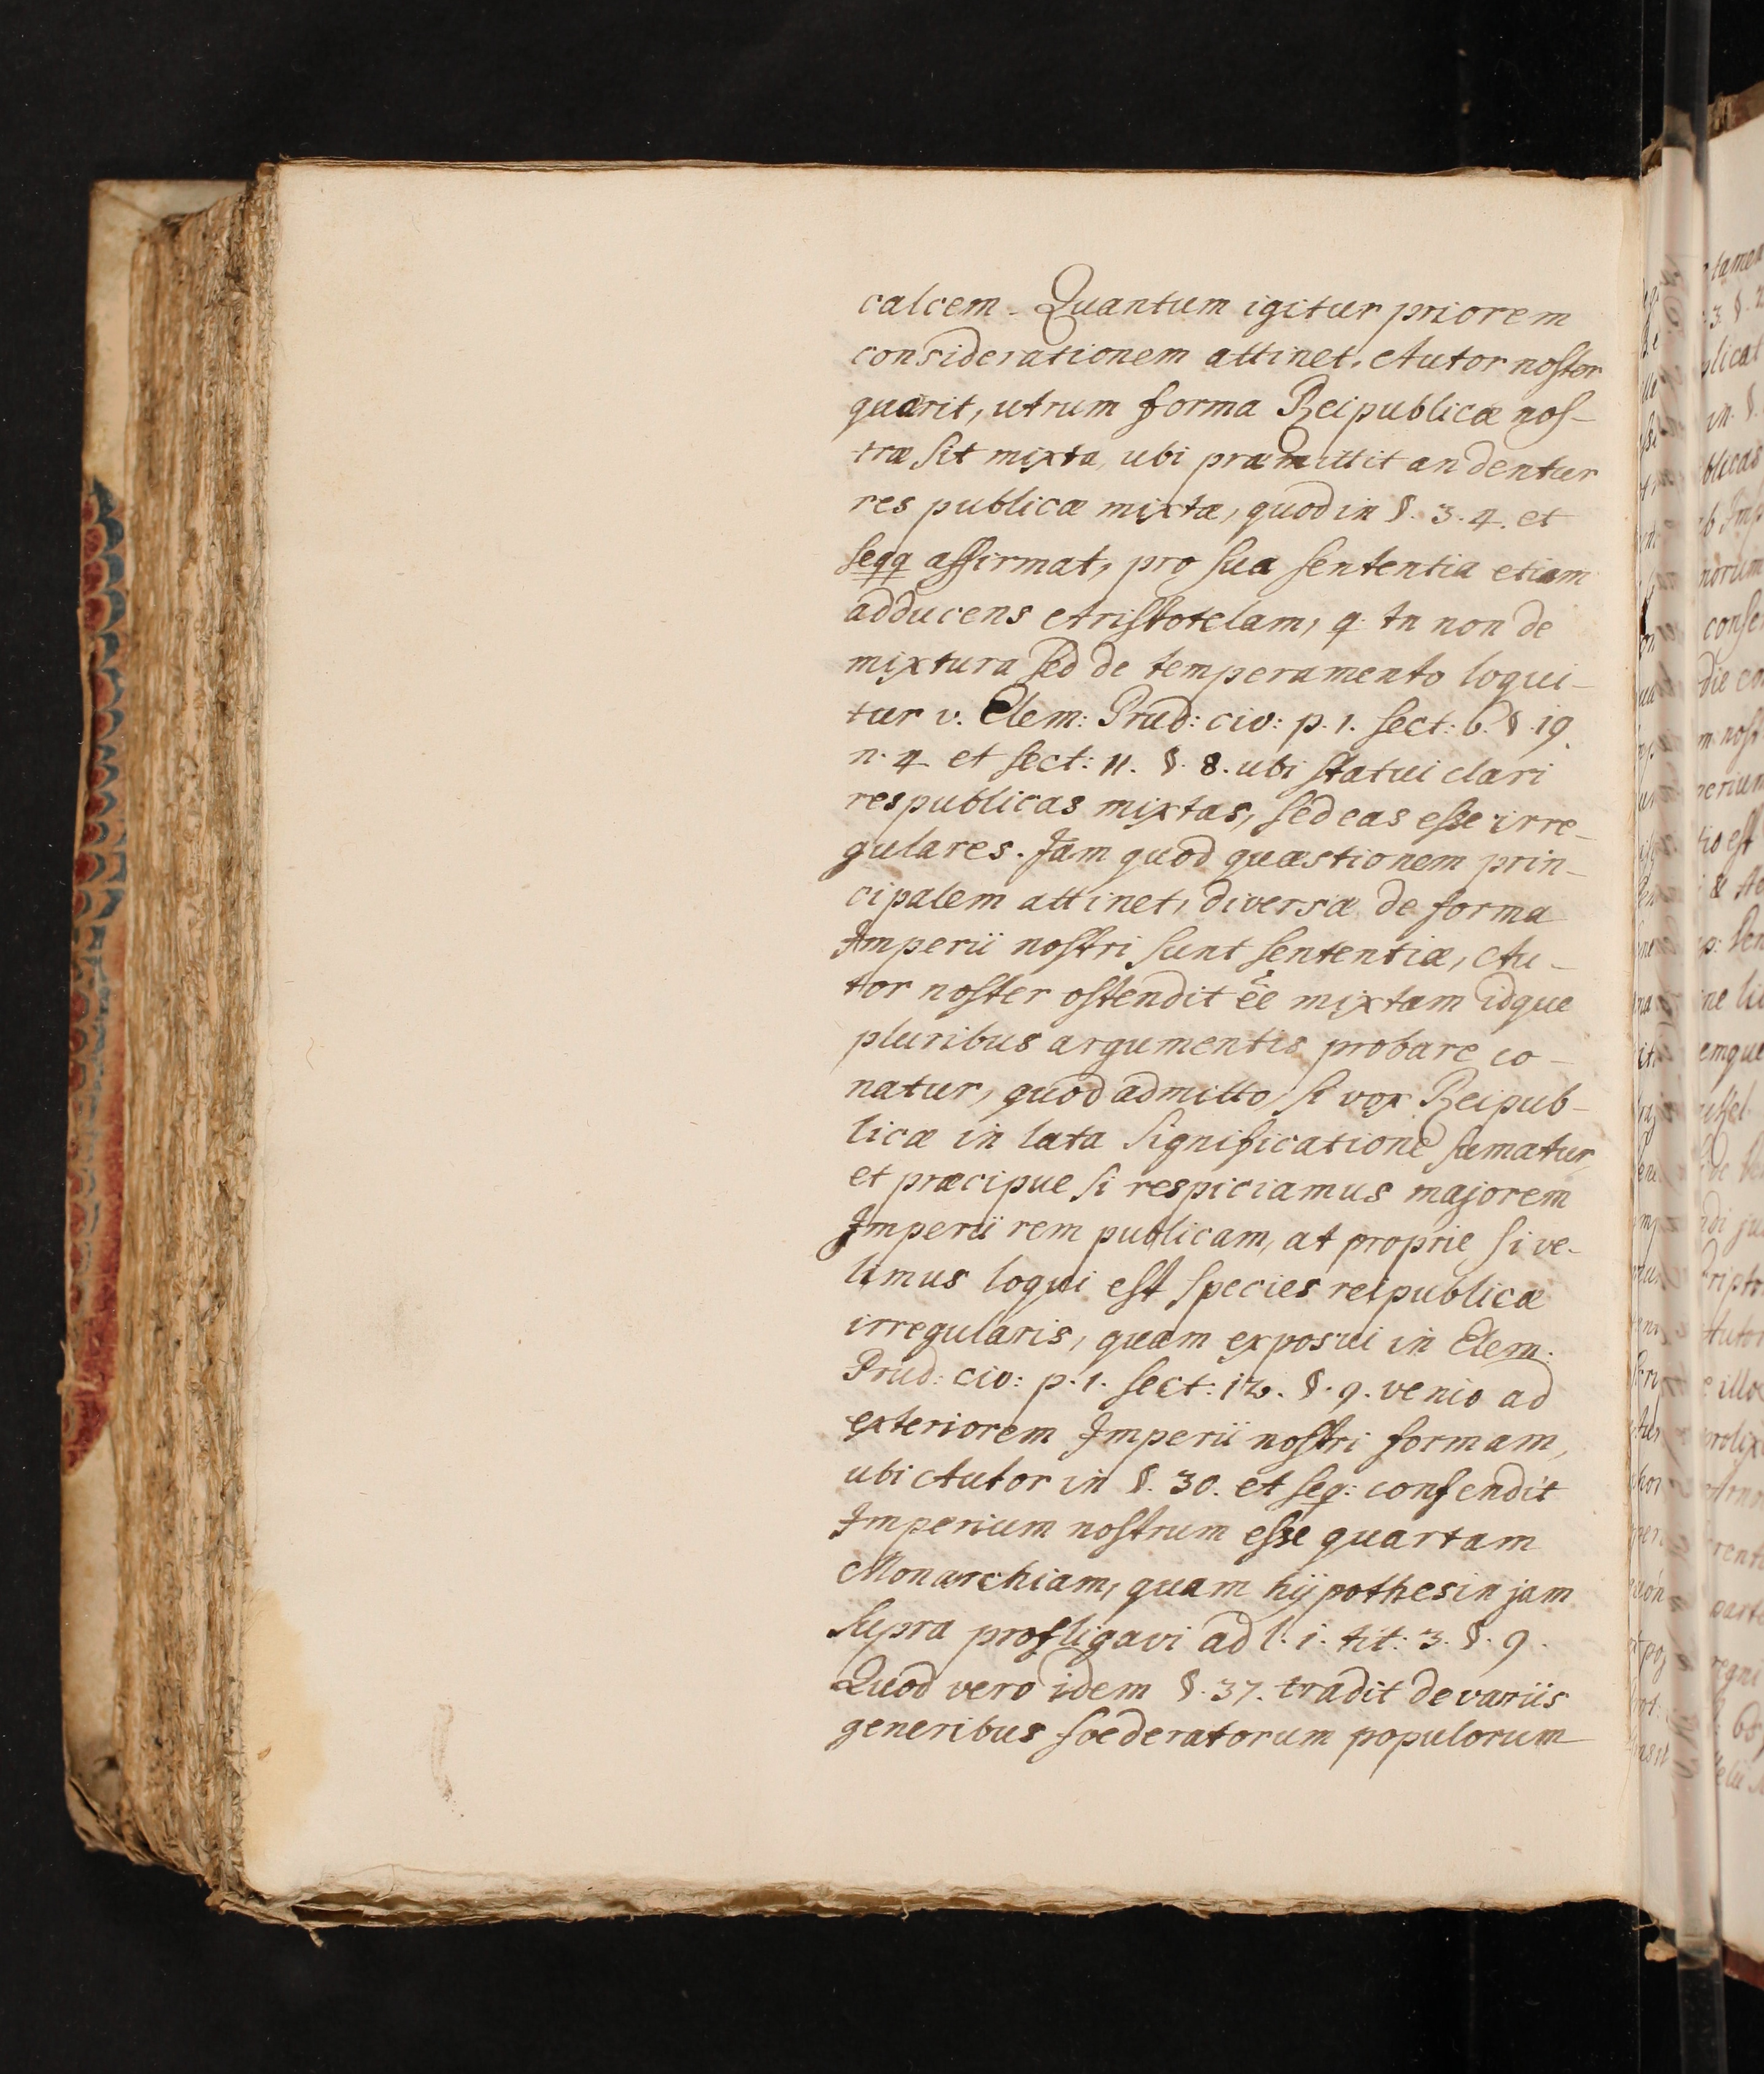 calcem. Quantum igitur priorem
considerationem attinet, Autor noster
quærit, utrum forma Reipublicæ nos-
træ sit mixta, ubi præmittit an dentur
res publicæ mixtæ, quod in §. 3. 4. et
seqq affirmat, pro sua sententia etiam
adducens Aristotelam, q. tn non de
mixtura sed de temperamento loqui-
tur v. Elem: Prud: civ: p. 1. sect: 6. §. 19.
n. 4. et sect: 11. §. 8. ubi statui clari
respublicas mixtas, sed eas esse irre-
gulares. Jam quod quæstionem prin-
cipalem attinet, diversæ de forma
Imperii nostri sunt sententiæ, Au-
tor noster ostendit ee mixtam idque
pluribus argumentis probare co-
natur, quod admitto si vox Reipub-
licæ in lata significatione sumatur,
et præcipue si respiciamus majorem
Imperii rem publicam, at proprie si ve-
limus loqui est species reipublicæ
irregularis, quam exposui in Elem:
Prud: civ: p. 1. sect: 12. §. 9. venio ad
exteriorem Imperii nostri formam,
ubi Autor in §. 30. et seq: confendit
Imperium nostrum esse quartam
Monarchiam, quam hÿpothesin jam
supra profligavi ad l. i. tit: 3. §. 9.
Quod vero idem §. 37. tradit de variis
generibus foederatorum populorum